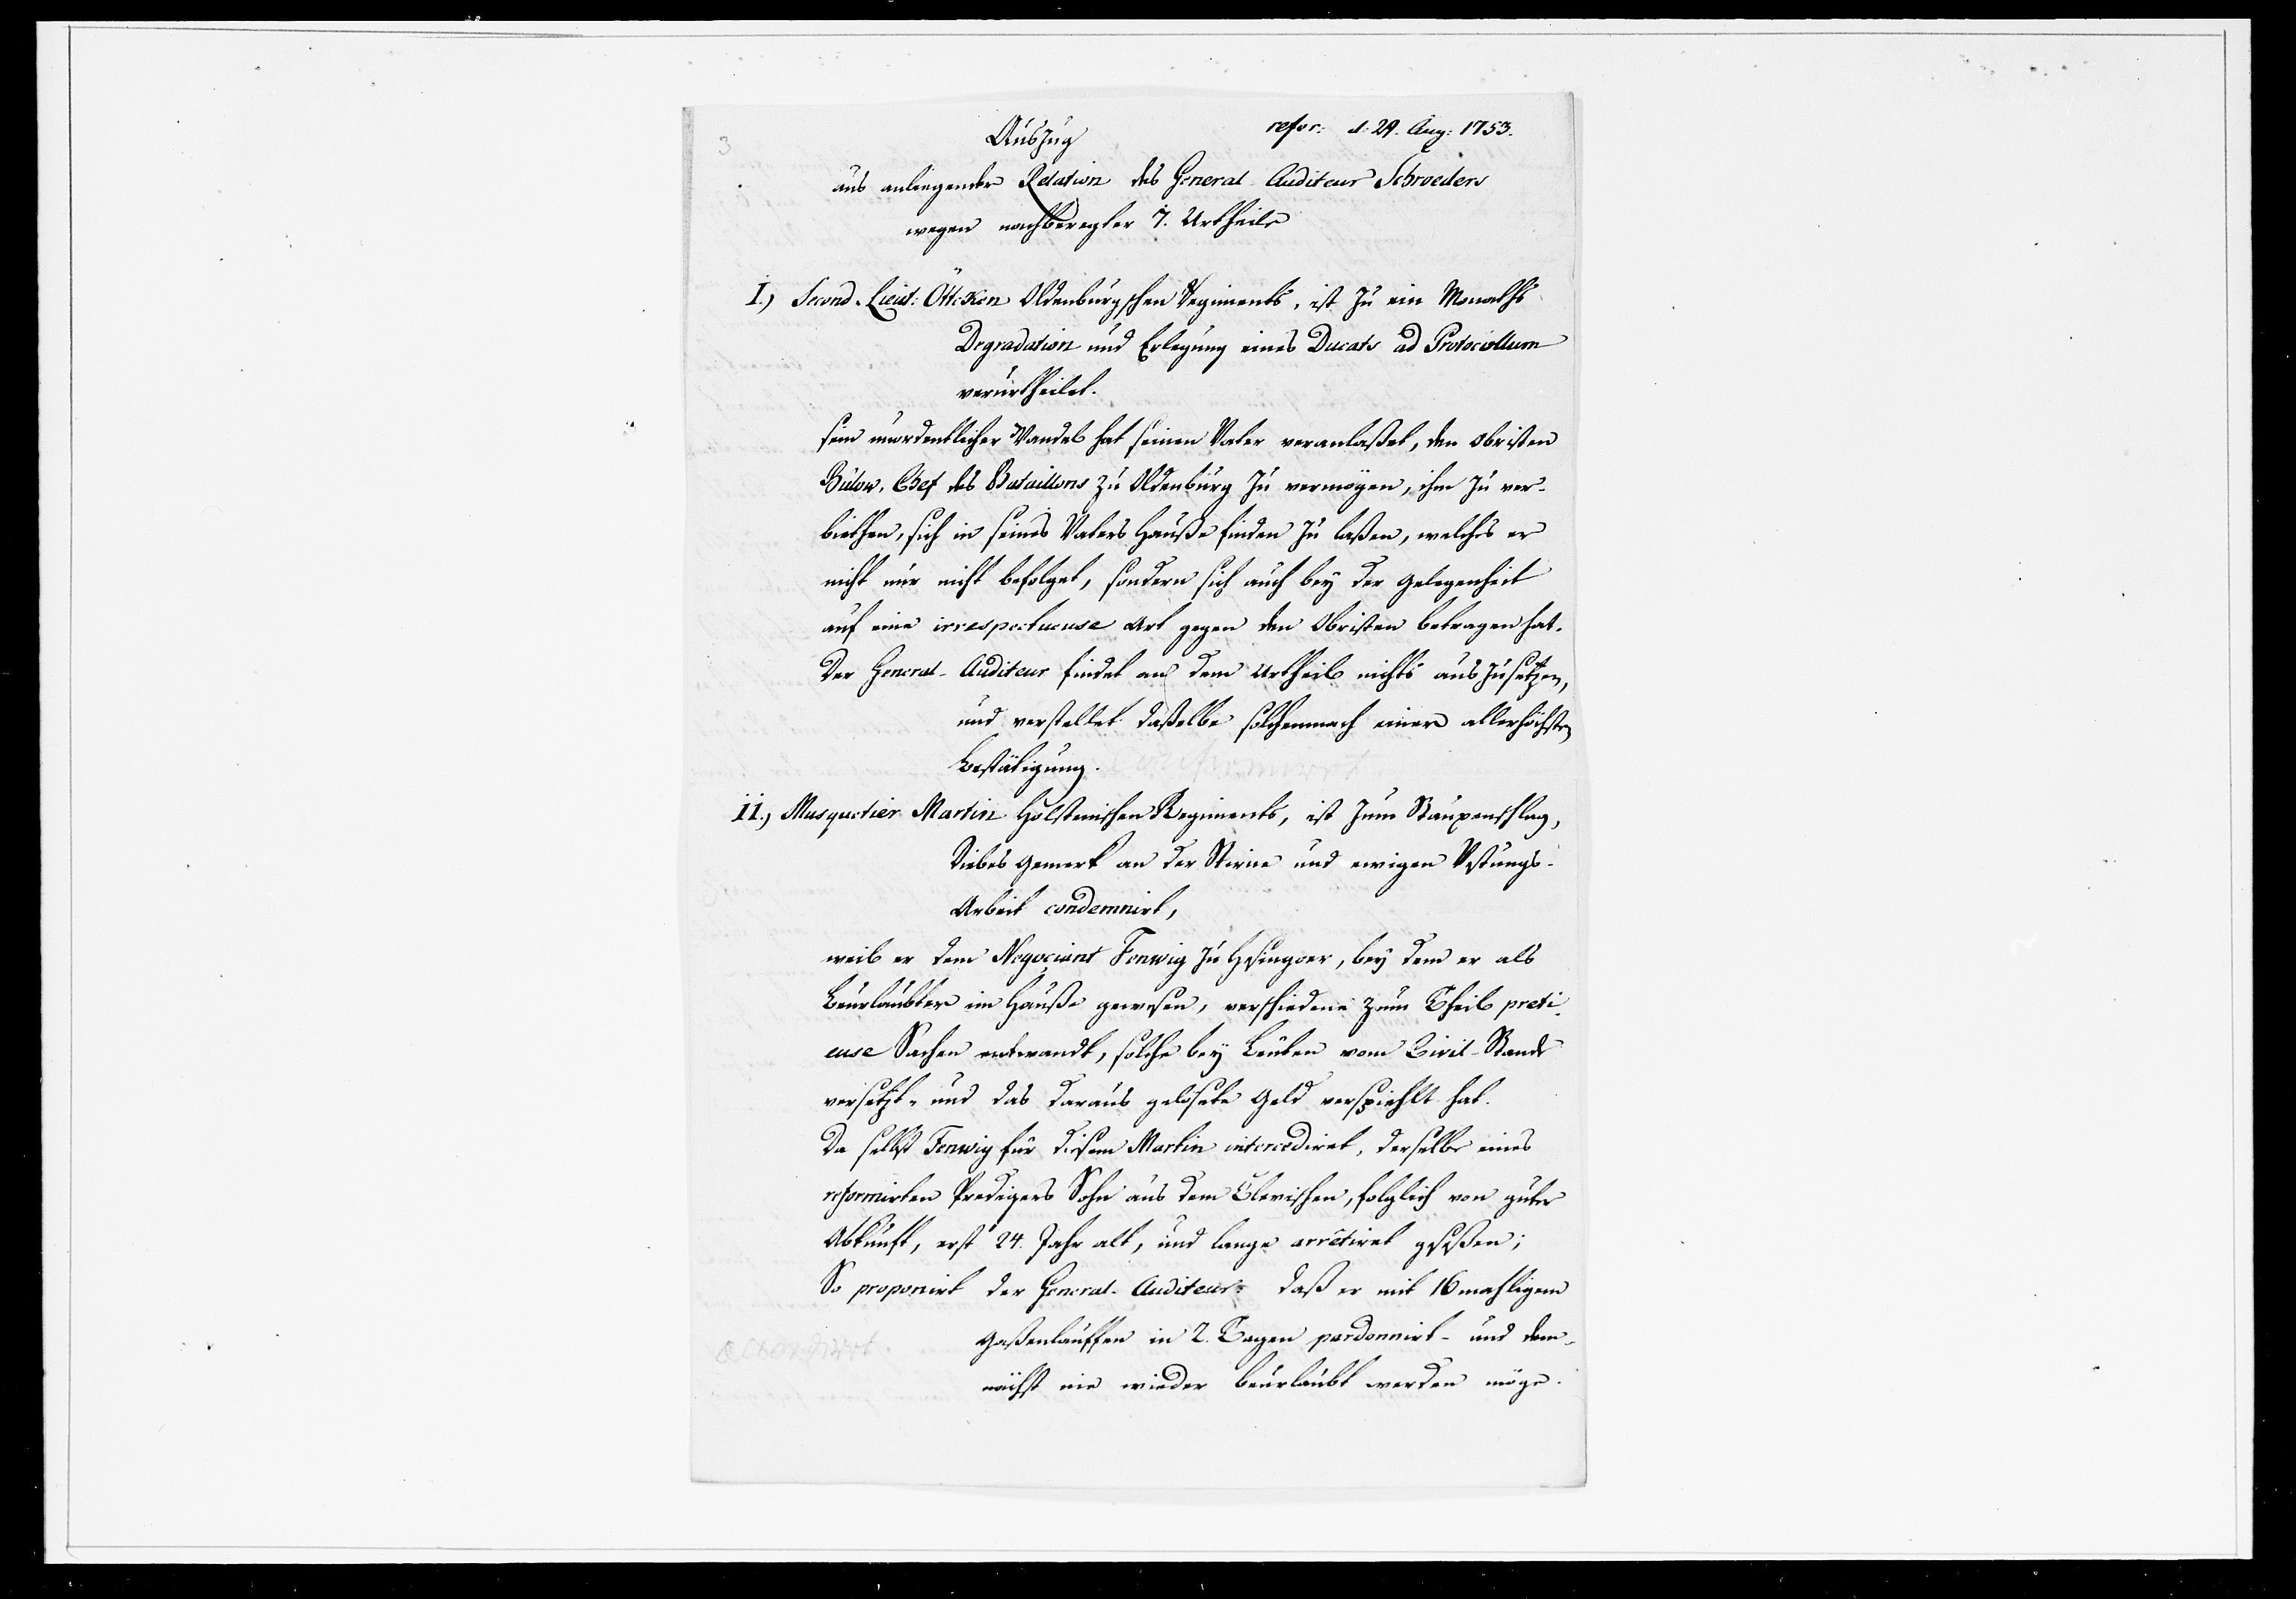 3
refer: d: 29. Aug: 1753.
Auszug
aus anliegender Relation des General Auditeur Schroeders
wegen nachberegter 7. Urtheile
I.) Second-Lieut: Öttcken Oldenburgschen Regiments, ist zu ein Monaths
Degradation und Erlegung eines Ducats ad Protocollum
verurtheilet.
sein unordentlicher Wandel hat seinen Vater veranlaßet, den Obristen
Bülow, Chef des Bataillons zu Oldenburg zu vermögen, ihm zu ver-
biethen, sich in seines Vaters Hauße finden zu laßen, welches er
nicht nur nicht befolget, sondern sich auch bey der Gelegenheit
auf eine irrespectueuse Art gegen den Obristen betragen hat.
Der General-Auditeur findet an dem Urtheil nichts auszusetzen,
und verstellet daßelbe solchemnach einer allerhöchsten
Bestätigung.
II.) Musquetier Martin Holsteinischen Regiments, ist zum Staupenschlag,
Diebes Gemerk an der Stirne und ewigen Vestungs-
Arbeit condemnirt,
weil er dem Negociant Fenwig zu Helsingoer, bey dem er als
Beurlaubter im Hauße gewesen, verschiedene zum Theil preti-
euse Sachen entwandt, solche bey Leuten vom Civil-Stande
versetzt- und das daraus gelösete Geld verspiehlt hat.
Da selbst Fenwig für diesem Martin intercediret, derselbe eines
reformirten Predigers Sohn aus dem Clevischen, folglich von guter
Abkunft, erst 24. Jahr alt, und lange arrêtiret geseßen;
So proponirt der General-Auditeur: daß er mit 16 mahligem
Gaßenlauffen in 2. Tagen pardonnirt- und dem-
nächst nie wieder beurlaubt werden möge.